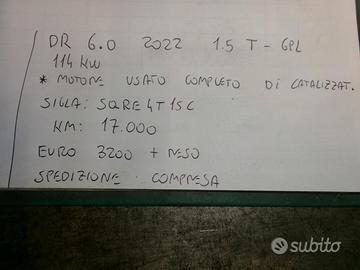 DR 6.0 2022 1.5 T - GPL
114 KW
* MOTORE USATO COMPLETO DI CATALIZZAT.
SIGLA: SQRE4T15C
KM: 17.000
EURO 3200 + RESO
SPEDIZIONE COMPRESA
subito